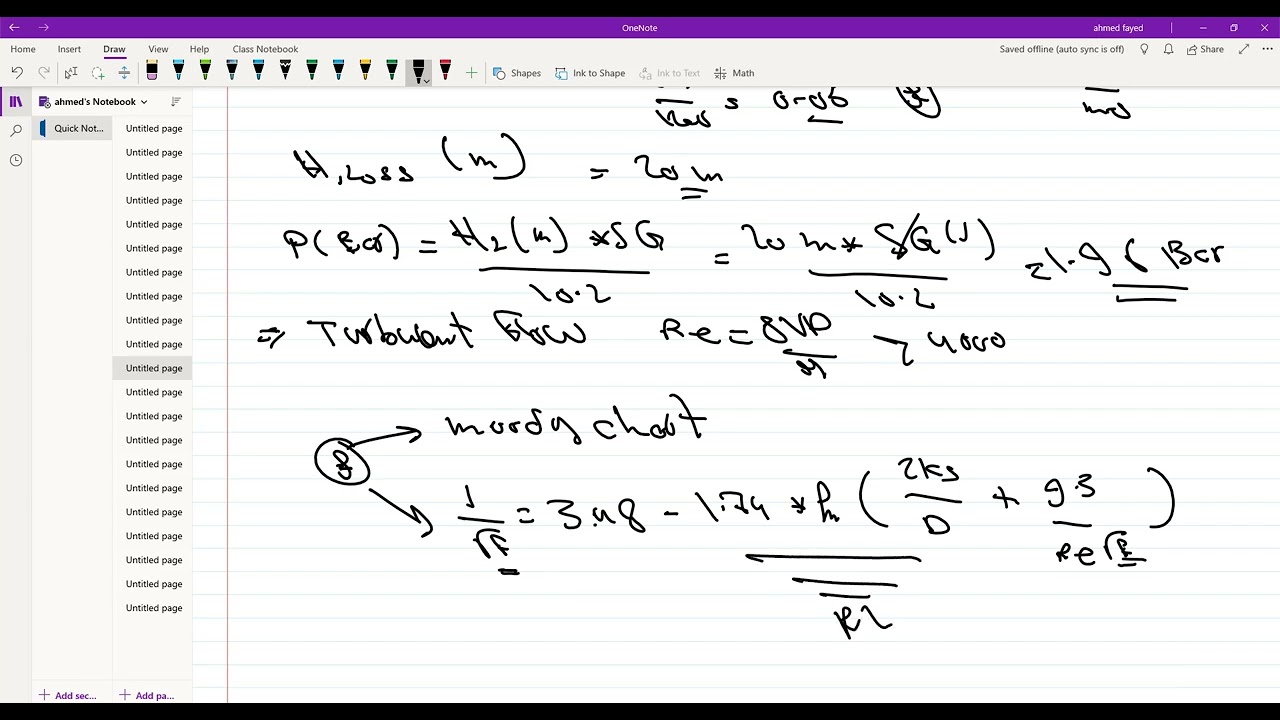 OneNote
ahmed fayed
Home Insert Draw View Help Class Notebook
Saved offline (auto sync is off) Share
Shapes Ink to Shape Ink to Text Math
ahmed's Notebook
Quick Not...
Untitled page
Untitled page
Untitled page
Untitled page
Untitled page
Untitled page
Untitled page
Untitled page
Untitled page
Untitled page
Untitled page
Untitled page
Untitled page
Untitled page
Untitled page
Untitled page
Untitled page
Untitled page
Untitled page
Untitled page
Untitled page
Add sec... Add pa...
H,Loss (m) = 20 m
P(Bar) = H2(m) *SG / 10.2 = 20 m* SG(1) / 10.2 ≈1.96 Bar
⇒ Turbulant Flow Re = ρVD / μ > 4000
f → moody chart
1/√f = 3.48 - 1.74 * ln ( 2ks/D + 9.3/Re√f )